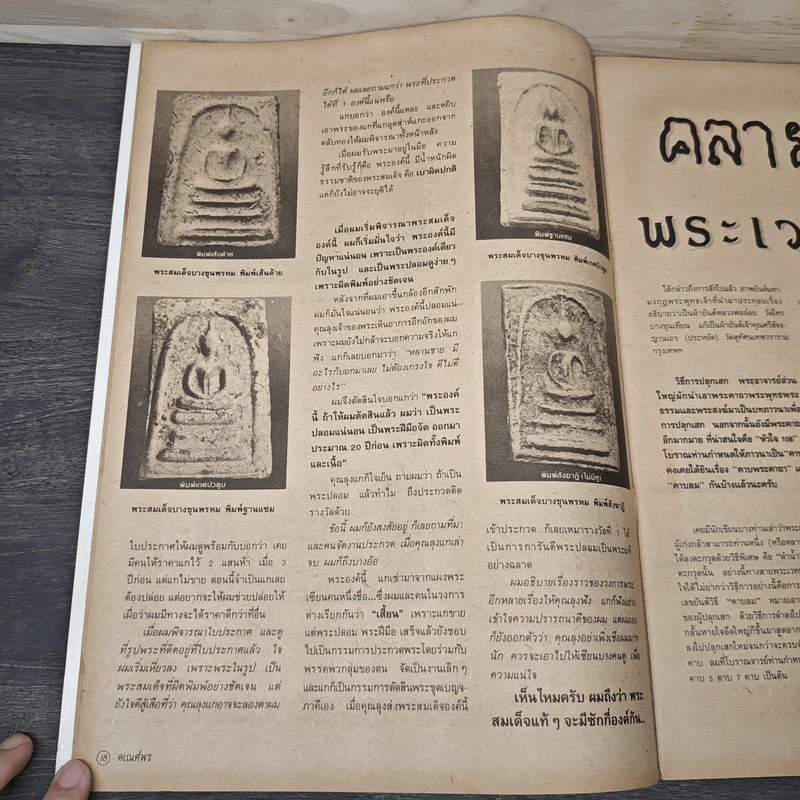 พิมพ์เส้นด้าย
พระสมเด็จบางขุนพรหม พิมพ์เส้นด้าย
พิมพ์เกศบัวตูม
พระสมเด็จบางขุนพรหม พิมพ์ฐานแซม
ใบประกาศให้ผมดูพร้อมกับบอกว่า เคย
มีคนให้ราคาแกไว้ 2 แสนห้า เมื่อ 3
ปีก่อน แต่แกไม่ขาย ตอนนี้จำเป็นแกเลย
ต้องปล่อย แต่อยากจะให้ผมช่วยปล่อยให้
เผื่อว่าผมมีทางจะได้ราคาดีกว่าที่อื่น
เมื่อผมพิจารณาใบประกาศ และดู
ที่รูปพระที่ติดอยู่ที่ใบประกาศแล้ว ใจ
ผมเริ่มเหี่ยวลง เพราะพระในรูป เป็น
พระสมเด็จที่ผิดพิมพ์อย่างชัดเจน แต่
ยังใจดีสู้เสือที่ว่า คุณลุงแกอาจจะลองตาผม
อีกก็ได้ ผมเลยถามแกว่า พระที่ประกวด
ได้ที่ 1 องค์นี้แน่หรือ
แกบอกว่า องค์นี้แหละ และหยิบ
เอาพระของแกที่แกอุตส่าห์แกะออกจาก
ตลับทองให้ผมพิจารณาทั้งหน้าหลัง
เมื่อผมรับพระมาอยู่ในมือ ความ
รู้สึกที่รับรู้ก็คือ พระองค์นี้ มีน้ำหนักผิด
ธรรมชาติของพระสมเด็จ คือ เบาผิดปกติ
แต่ก็ยังไม่อาจจะยุติได้
เมื่อผมเริ่มพิจารณาพระสมเด็จ
องค์นี้ ผมก็เริ่มมั่นใจว่า พระองค์นี้มี
ปัญหาแน่นอน เพราะเป็นพระองค์เดียว
กับในรูป และเป็นพระปลอมดูง่าย ๆ
เพราะผิดพิมพ์อย่างชัดเจน
หลังจากที่ผมเอาขึ้นกล้องอีกสักพัก
ผมก็มั่นใจแน่นอนว่า พระองค์นี้ปลอมแน่
คุณลุงเจ้าของพระเห็นอาการอึกอักของผม
เพราะผมยังไม่กล้าจะบอกความจริงให้แก
ฟัง แกก็เลยบอกมาว่า "หลานชาย มี
อะไรก็บอกมาเลย ไม่ต้องเกรงใจ ดีไม่ดี
อย่างไร"
ผมจึงตัดสินใจบอกแกว่า "พระองค์
นี้ ถ้าให้ผมตัดสินแล้ว ผมว่า เป็นพระ
ปลอมแน่นอน เป็นพระฝีมือจัด ออกมา
ประมาณ 20 ปีก่อน เพราะผิดทั้งพิมพ์
และเนื้อ"
คุณลุงแกก็ใจเย็น ถามผมว่า ถ้าเป็น
พระปลอม แล้วทำไม ถึงประกวดติด
รางวัลด้วย
ข้อนี้ ผมก็ยังสงสัยอยู่ ก็เลยถามที่มา
และคนจัดงานประกวด เมื่อคุณลุงแกเล่า
จบ ผมก็ถึงบางอ้อ
พระองค์นี้ แกเช่ามาจากแผงพระ
เซียนคนหนึ่งชื่อ...ซึ่งผมและคนในวงการ
ต่างเรียกกันว่า "เสี้ยน" เพราะแกขาย
แต่พระปลอม พระฝีมือ เสร็จแล้วยังชอบ
ไปเป็นกรรมการประกวดพระโดยร่วมกับ
พรรคพวกลุ่มของตน จัดเป็นงานเล็ก ๆ
และแกก็เป็นกรรมการตัดสินพระชุดเบญจ-
ภาคีเอง เมื่อคุณลุงส่งพระสมเด็จองค์นี้
พิมพ์ฐานแซม
พระสมเด็จบางขุนพรหม พิมพ์เกศบัวตูม
พิมพ์สังฆาฏิ (ไม่มีหู)
พระสมเด็จบางขุนพรหม พิมพ์สังฆาฏิ
เข้าประกวด ก็เลยเหมารางวัลที่ 1 ให้
เป็นการการันตีพระปลอมเป็นพระแท้
อย่างฉลาด
ผมอธิบายเรื่องราวของวงการพระ
อีกหลายเรื่องให้คุณลุงฟัง แกก็ฟังอย่าง
เข้าใจความปรารถนาดีของผม แต่ผมเอง
ก็ยังออกตัวว่า คุณลุงอย่าเพิ่งเชื่อผมมาก
นัก ควรจะเอาไปให้เซียนบางคนดู เพื่อ
ความแน่ใจ
เห็นไหมครับ ผมถึงว่า พระ
สมเด็จแท้ ๆ จะมีซักกี่องค์กัน...
18 คเณศ์พร
คลาย
พระเว
ได้กล่าวถึงการสักไปแล้ว ภาพยันต์มหา
มงกุฎพระพุทธเจ้าที่นำมาประกอบเรื่อง
อธิบายว่าเป็นผ้ายันต์หลวงพ่ออ๋อย วัดไทร
บางขุนเทียน แก้เป็นผ้ายันต์เจ้าคุณศรีสัจจ-
ญาณเถร (ประหยัด) วัดสุทัศนเทพวราราม
กรุงเทพฯ
วิธีการปลุกเสก พระอาจารย์ส่วน
ใหญ่มักนำเอาพระคาถาพระพุทธพระ
ธรรมและพระสงฆ์มาเป็นบทภาวนาเพื่อ
การปลุกเสก นอกจากนั้นยังมีพระคา
อีกมากมาย ที่น่าสนใจคือ "หัวใจ 108"
โบราณท่านกำหนดให้ภาวนาเป็น "คาบ
คงเคยได้ยินเรื่อง "คาบพระคาถา" แ
"คาบลม" กันบ้างแล้วนะครับ
เคยมีนักเขียนบางท่านเล่าว่าพระเ
ผู้เก่งกล้าสามารถท่านหนึ่ง (หรือหลาย
ได้ลงตะกรุดด้วยวิธีพิเศษ คือ "ดำน้ำ
ตะกรุดนั้น อย่างนี้ทางสายพระเวทเ
ใจได้ไม่ยากกว่าวิธีการอย่างนี้คือการ
เลขยันต์วิธี "คาบลม" หมายเอา
ของผู้ปลุกเสก ด้วยวิธีการดำลงไป
กลั้นหายใจอึดใหญ่ก็ขึ้นมาสูดอาก
ลงไปปลุกเสกใหม่จนกว่าจะครบจำ
คาบ ลมที่โบราณจารย์ท่านกำหนด
คาบ 5 คาบ 7 คาบ เป็นต้น